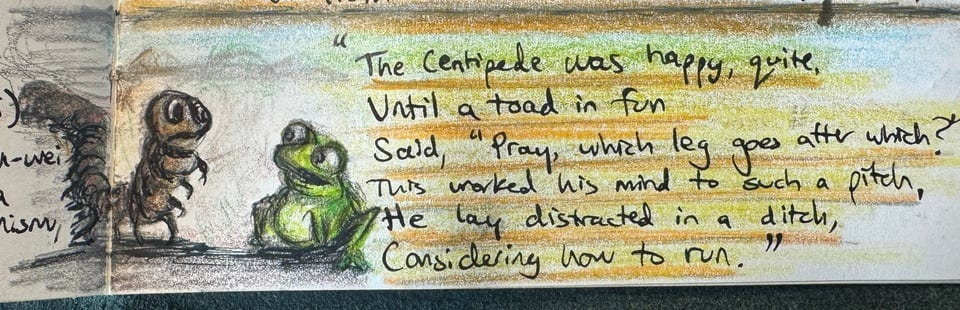 )
-wei
nism,
"The Centipede was happy, quite,
Until a toad in fun
Said, "Pray, which leg goes after which?"
This worked his mind to such a pitch,
He lay distracted in a ditch,
Considering how to run."